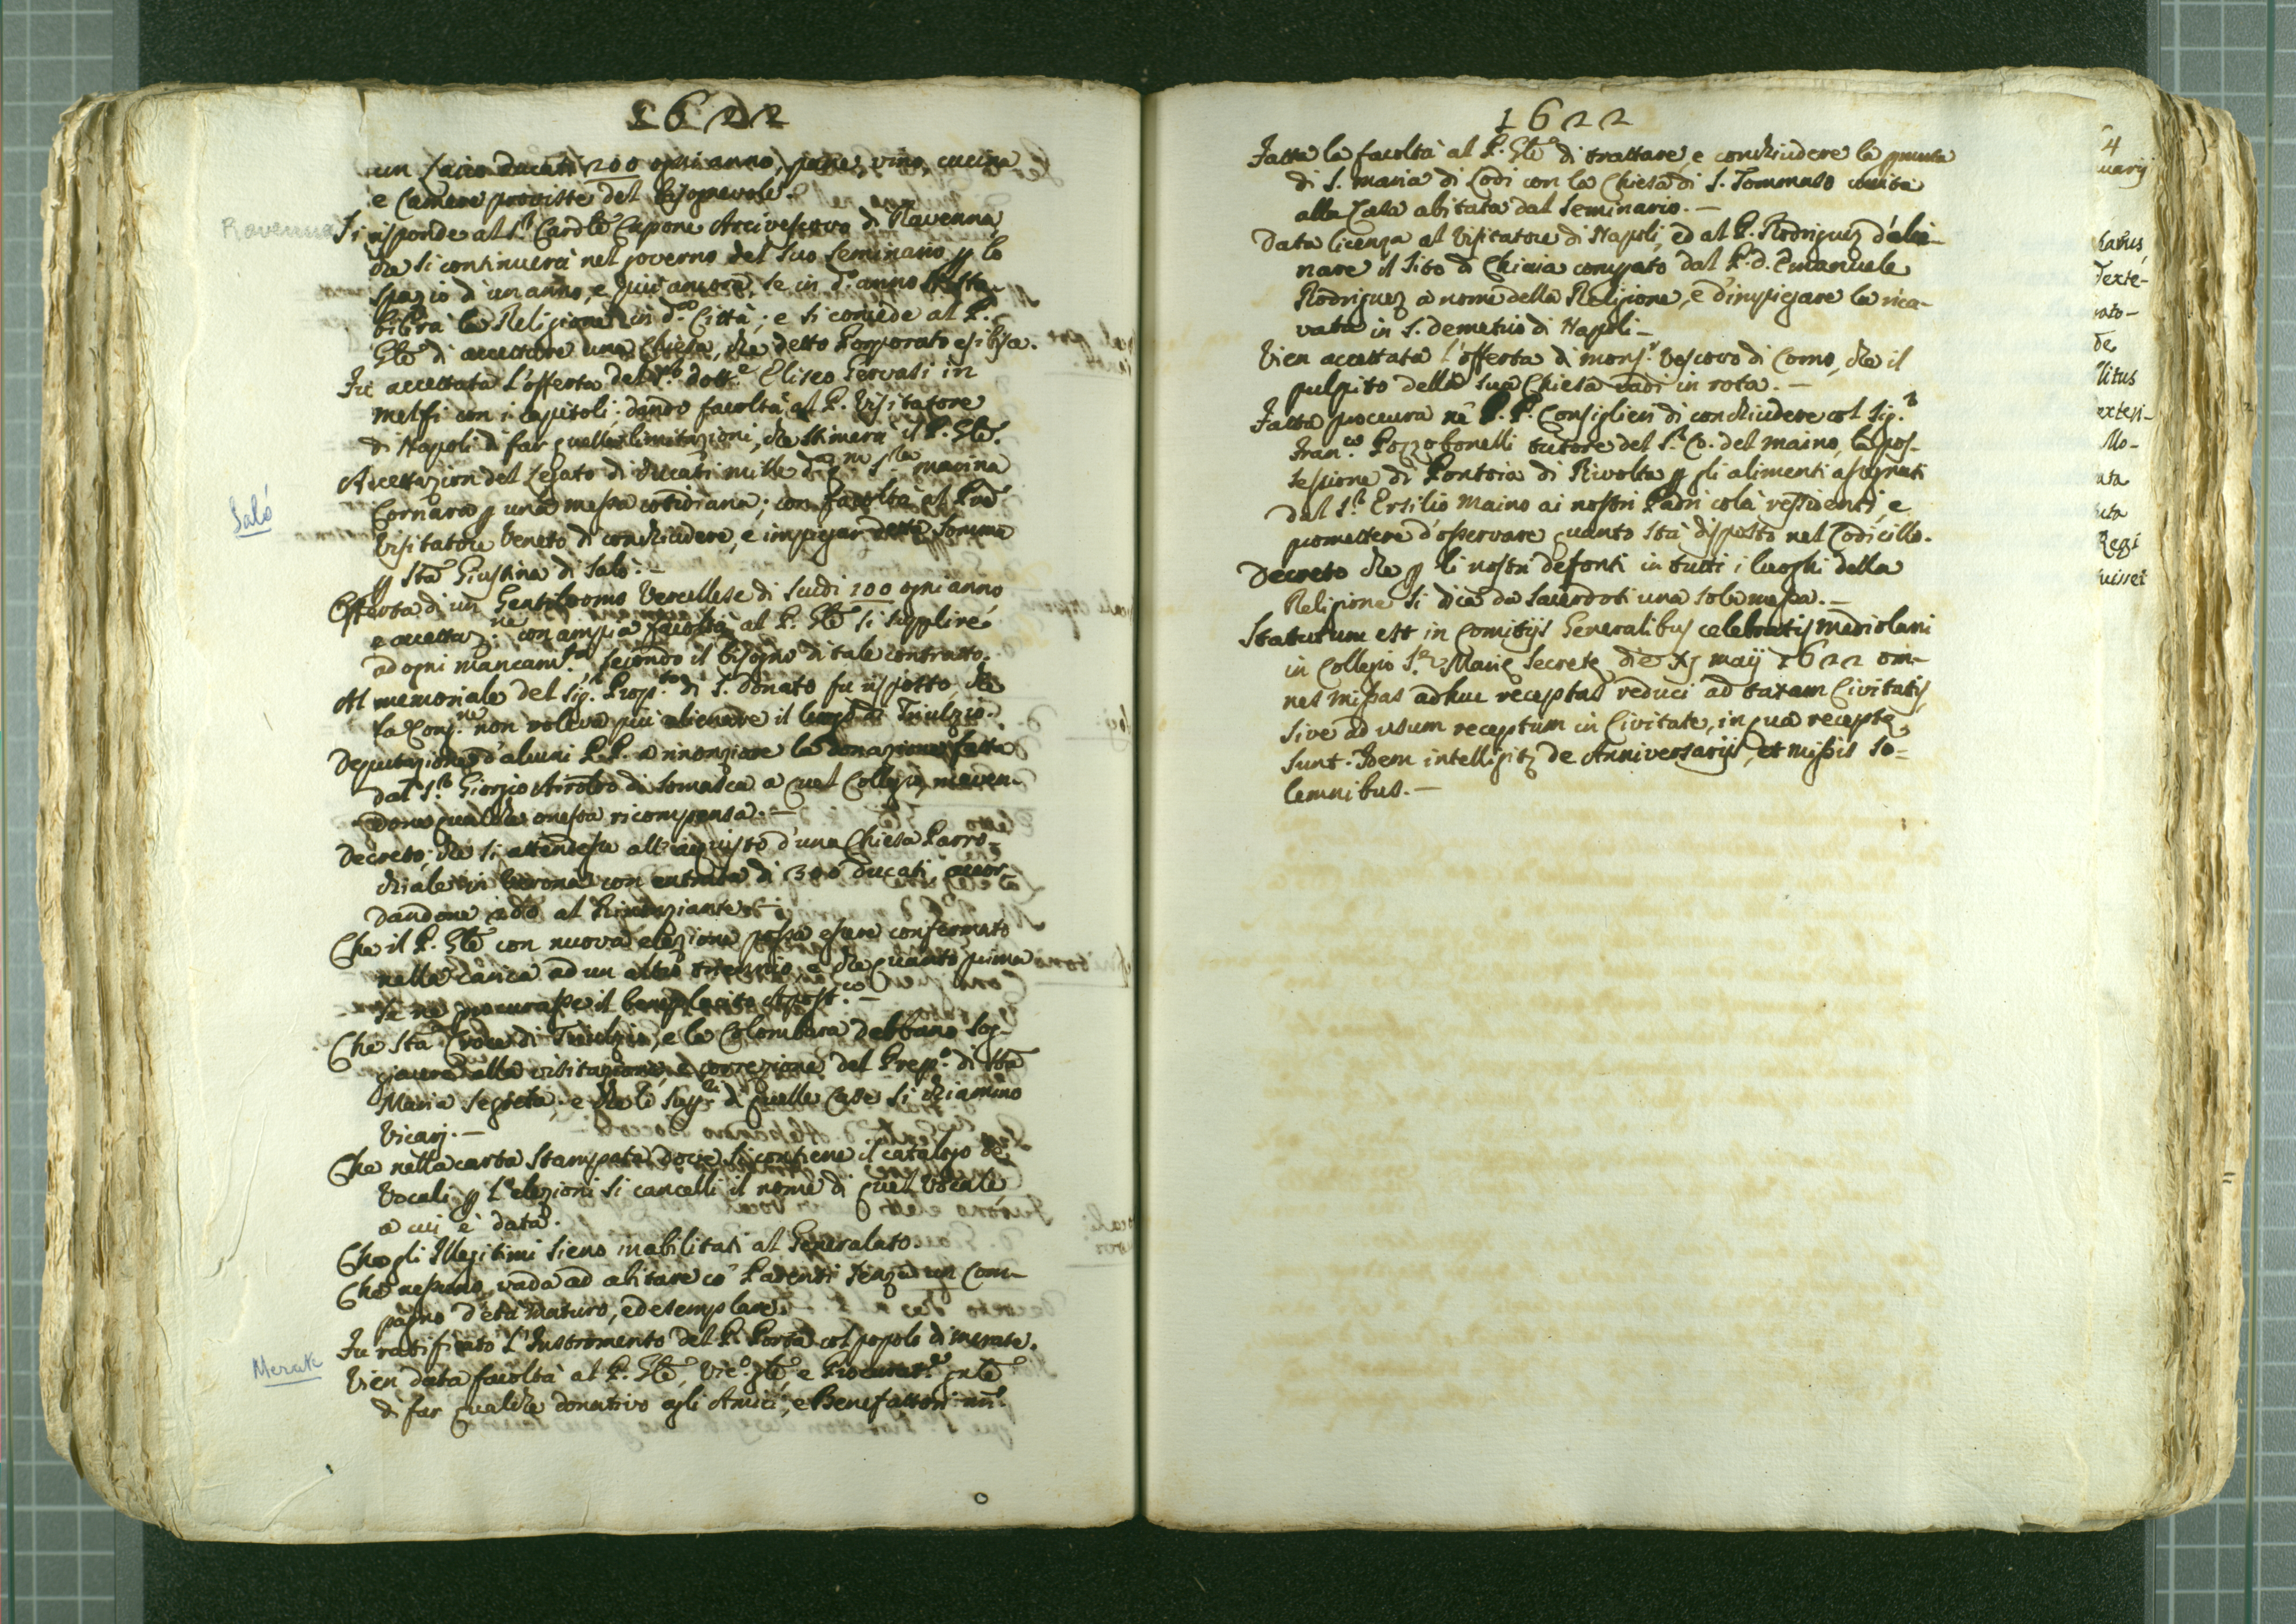 1622
un laico ducati 200 ogni anno, pane, vino, cucina
e camere proviste del bisognevole.
Ravenna
Si risponde al S.r Cardle Capone Arcivescovo di Ravenna
che si continuerà nel governo del suo Seminario p lo
spazio d'un anno, e più ancora, se in d.o anno si sta-
bilirà la Religione in d.a Città; e si concede al P.
Gle di accettare una Chiesa, che detto Porporato esibisca.
Fu accettata l'offerta del S.r dott.e Eliseo Gervasi in
Melfi con i capitoli: dando facoltà al P. Visitatore
di Napoli di far quelle limitazioni, che stimerà il P. Gle.
Accettazion del Legato di ducati mille d. Sra Marina
Salò
Cornara p una messa cotidiana; con facoltà al Pre
Visitatore Veneto di conchiudere, e impiegar detta somma
p Sta Giustina di Salò. —
Offerta di un Gentiluomo Vercellese di scudi 100 ogni anno
e accettaz.ne con ampia facoltà al P. Gle si supplire
ad ogni mancam.to secondo il bisogno di tale contratto.
Al memoriale del Sig.r Prop.to di S. Donato fu risposto, che
la Cong.ne non voleva più alienare il luogo di Triulzio.
Deputazione d'alcuni P.P. a rinonziare la donazione fatta
dal S.r Giorgio Airoldo di Somasca a quel Collegio, aven-
done qualche onesta ricompensa. —
Decreto, che si attendesse all'acquisto d'una Chiesa Parro-
chiale in Verona con entrata di 300 ducati, accor-
dandone 200 al Rinunziante.
Che il P. Gle con nuova elezione possa essere confermato
nella carica ad un altro triennio, e che quanto prima
se ne procurasse il beneplacito Apost.co —
Che Sta Croce di Triulzio, e la Colombara debbano sog-
giacere alla visitazione, e correzione del Prep.o di Sta
Maria Segreta, e che li Sup.ri di quelle Case si chiamino
Vicarj. —
Che nella carta stampata dove si contiene il catalogo de
Vocali p l'elezioni si cancelli il nome di quel Vocale
a cui è data.
Che gli Illegitimi sieno inabilitati al Generalato.
Che nessuno vada ad abitare co' Parenti senza un Com-
pagno d'età maturo, ed esemplare.
Fu ratificato l'Instromento del P. Porta col popolo di Merate.
Merate
Vien data facoltà al P. Gle, Vic.o gle, e Procurat.e gnle
di far qualche donativo agli Amici, e Benefattori nri
1622
Fatta la facoltà al P. Gle di trattare e conchiudere la
di S. Maria di Lodi con la Chiesa di S. Tommaso unita
alla Casa abitata dal Seminario. —
Data licenza al Visitatore di Napoli, ed al P. Rodriguez d'alie-
nare il sito di Chiaia comprato dal P. D. Emanuele
Rodriguez a nome della Religione, e d'impiegare la rica-
vata in S. Demetrio di Napoli —
Vien accettata l'offerta di Mons.r Vescovo di Como, che il
pulpito della sua Chiesa vadi in rota. —
Fatta procura ne P.P. Consiglieri di conchiudere col Sig.r
Fran.co Pozzobonelli tutore del S.r Co. del Maino, la pos-
sessione di Pontoia di Rivolta p gli alimenti assegnati
dal S.r Ersilio Maino ai nostri Padri colà residenti, e
promettere d'osservare quanto sta disposto nel Codicillo.
Decreto che p li nostri defonti in tutti i luoghi della
Religione si dica da sacerdoti una sola messa. —
Statutum est in Comitijs Generalibus celebratis Mediolani
in Collegio S.æ Mariæ Secrete die XI Maij 1622 om-
nes missas adhuc receptas reduci ad taxam Civitatis,
sive ad usum receptum in Civitate, in qua recepte
sunt. Idem intelligitr de Anniversarijs, et missis so-
lemnibus. —